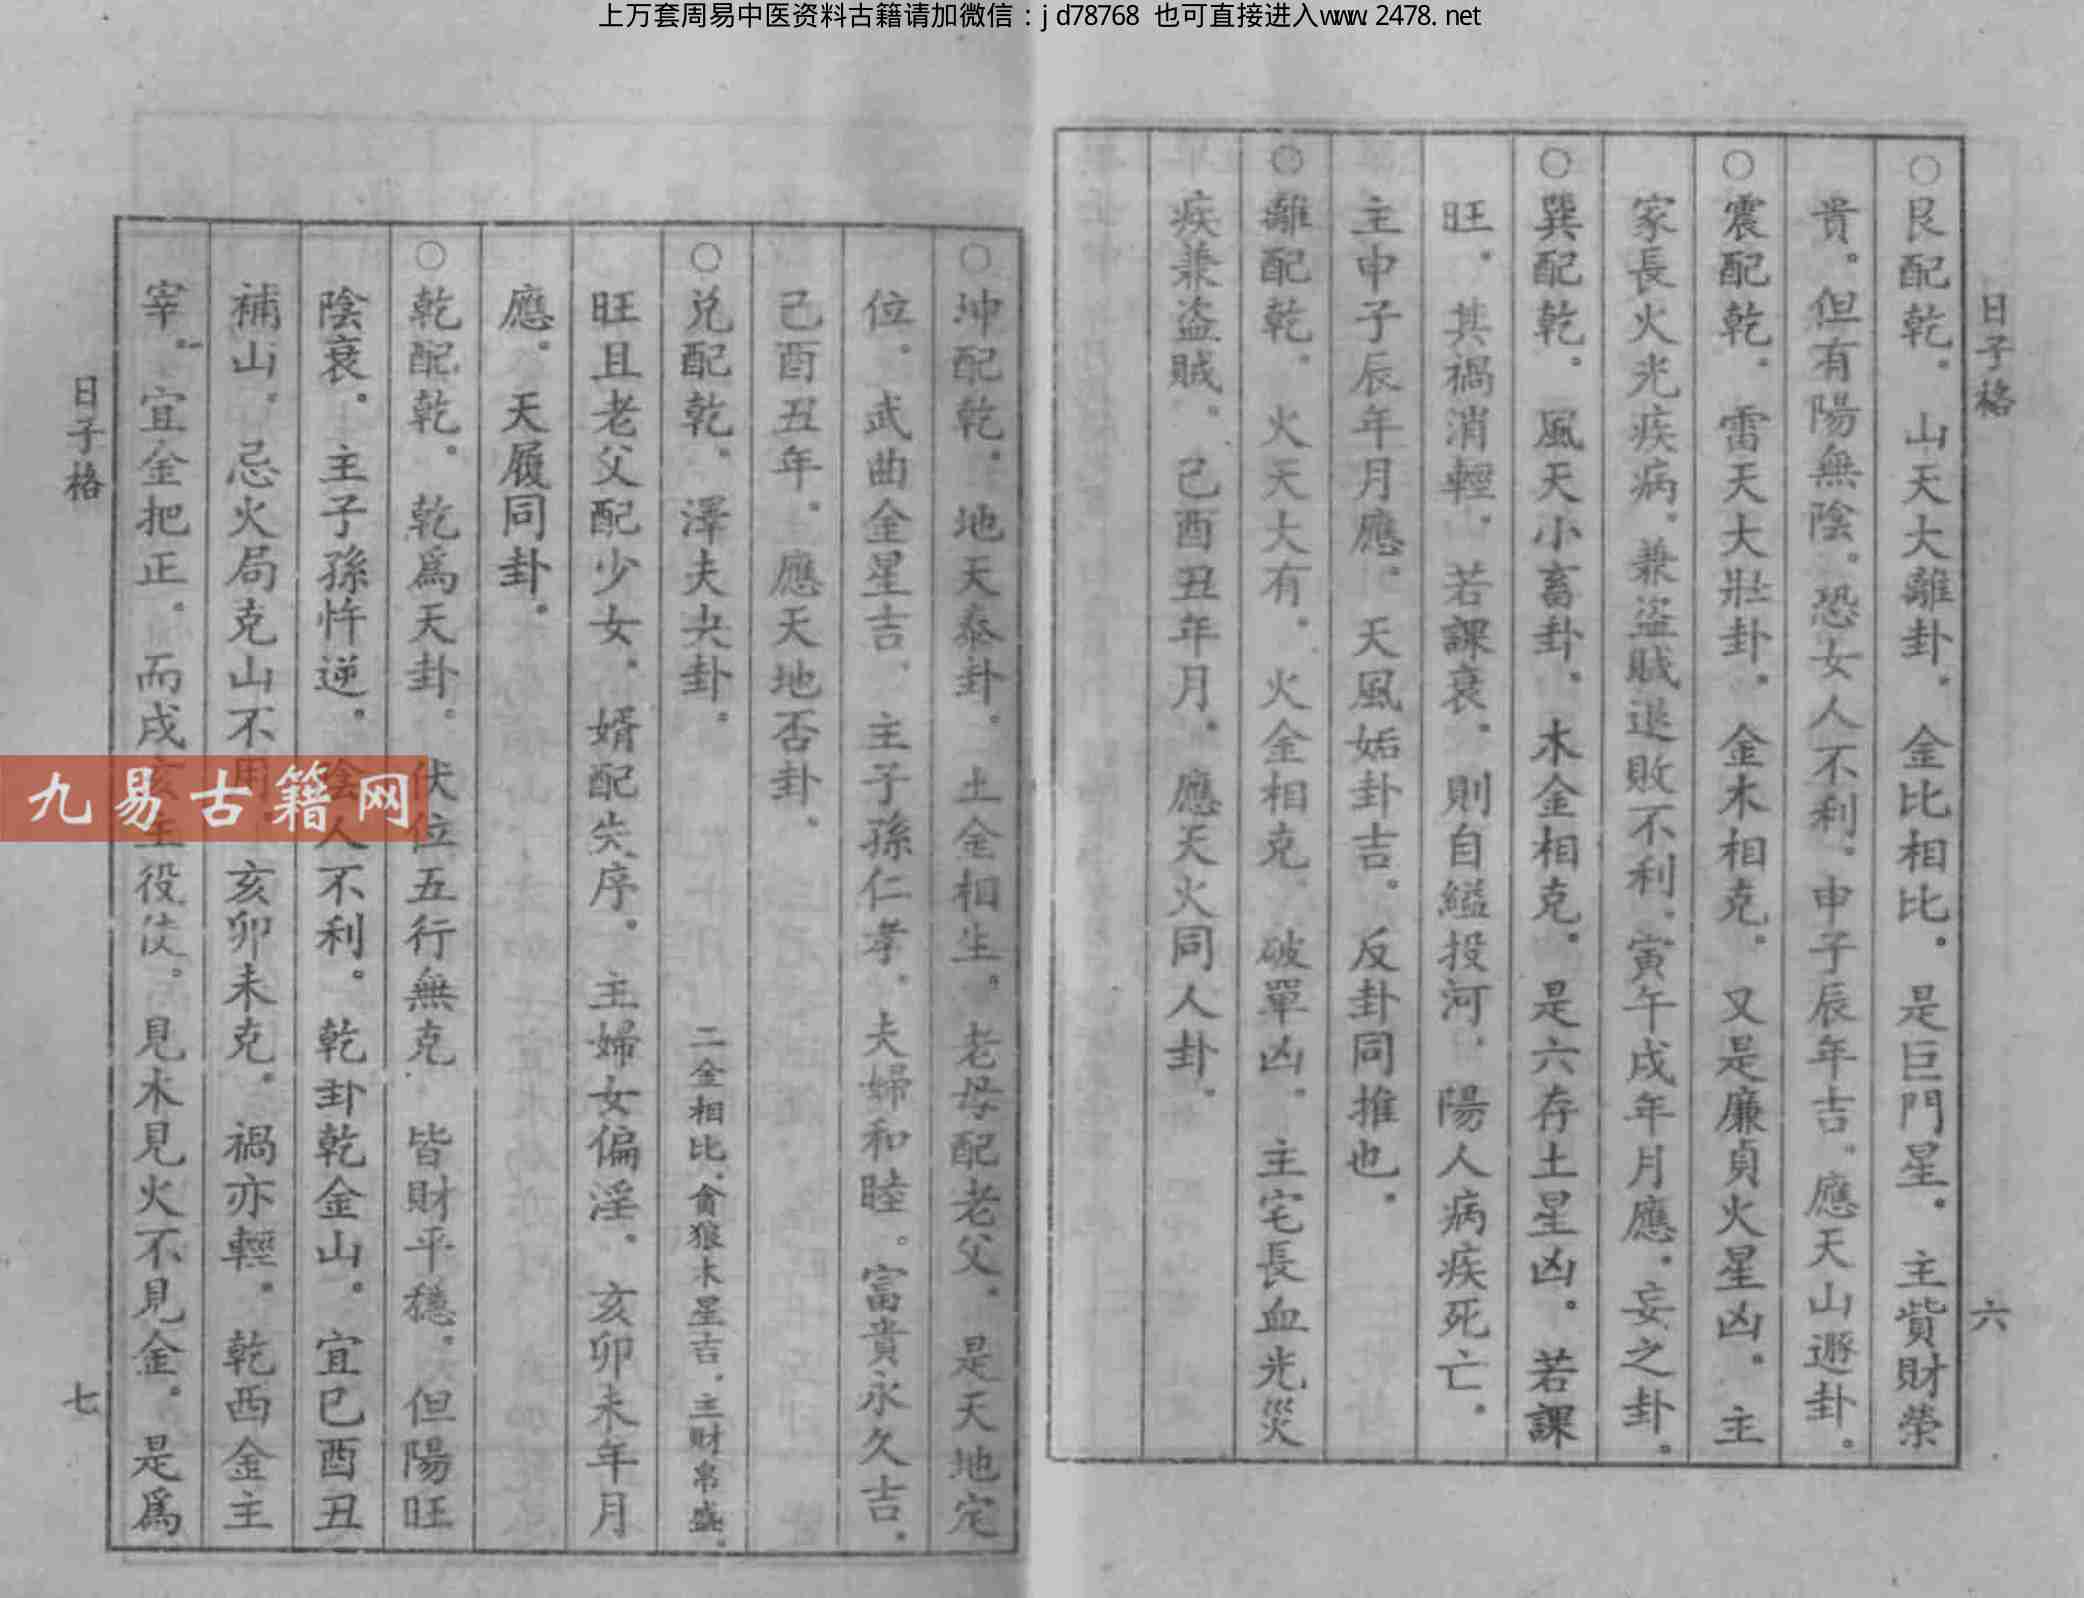 上万套周易中医资料古籍请加微信：jd78768 也可直接进入www.2478.net
日子格 六
○艮配乾。山天大離卦。金比相比。是巨門星。主貲財榮
貴。但有陽無陰。恐女人不利。申子辰年吉。應天山遯卦。
○震配乾。雷天大壯卦。金木相克。又是廉貞火星凶。主
家長火光疾病。兼盜賊退敗不利。寅午戌年月應。妄之卦。
○巽配乾。風天小畜卦。木金相克。是六存土星凶。若課
旺。其禍消輕。若課衰。則自縊投河。陽人病疾死亡。
主申子辰年月應。天風姤卦吉。反卦同推也。
○離配乾。火天大有。火金相克。破單凶。主宅長血光災
疾兼盜賊。己酉丑年月。應天火同人卦。
○坤配乾。地天泰卦。土金相生。老母配老父。是天地定
位。武曲金星吉。主子孫仁孝。夫婦和睦。富貴永久吉。
己酉丑年。應天地否卦。
○兑配乾。澤夫夬卦。二金相比。貪狼木星吉。主財帛盛。
旺且老父配少女。婿配失序。主婦女偏淫。亥卯未年月
應。天履同卦。
○乾配乾。乾爲天卦。伏位五行無克 皆財平穩。但陽旺
陰衰。主子孫忤逆。陰人不利。乾卦乾金山。宜巳酉丑
補山。忌火局克山不用。亥卯未克。禍亦輕。乾西金主
宰。宜金把正。而戌亥主役使。見木見火不見金。是爲
日子格 七
九易古籍网